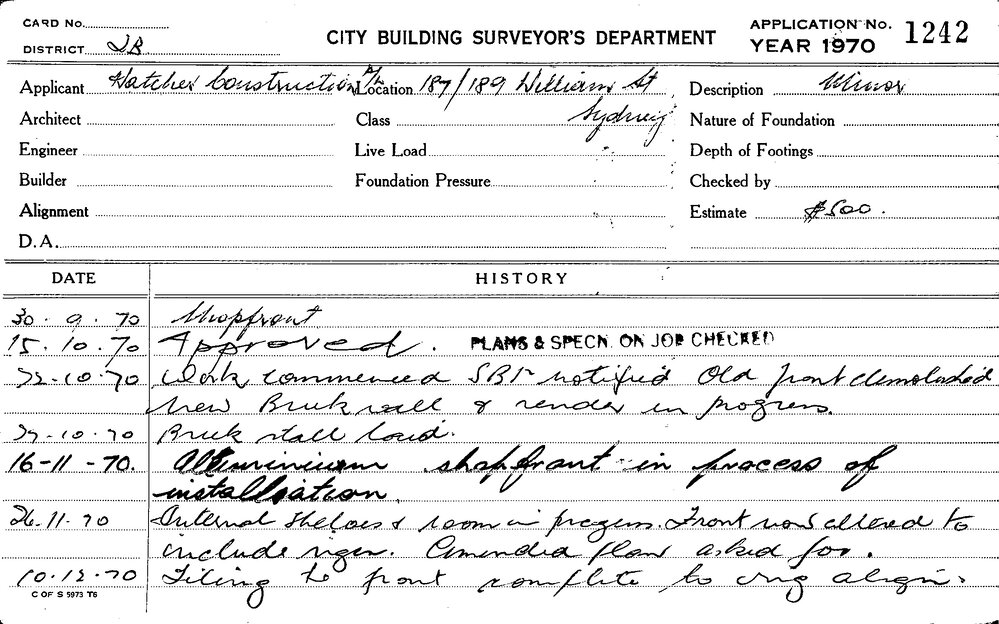 CARD No.
DISTRICT
CITY BUILDING SURVEYOR'S DEPARTMENT
APPLICATION No. 1242
YEAR 1970
Applicant Hatcher Construction P/L Location 187/189 William St Description Minor
Architect Class Sydney Nature of Foundation
Engineer Live Load Depth of Footings
Builder Foundation Pressure Checked by
Alignment Estimate $500.
D.A.
DATE HISTORY
30.9.70 Shopfront
15.10.70 Approved. PLANS & SPECN. ON JOB CHECKED
22-10.70 Work commenced notified Old front demolished
New Brick wall & render in progress.
29-10.70 Brick stall laid.
16-11-70. Aluminium shopfront in process of
installation.
26.11.70 Internal shelves & room in progress. Front now altered to
include Amended plan asked for.
10.12.70 Tiling to front complete to align.
C OF S 5973 T6